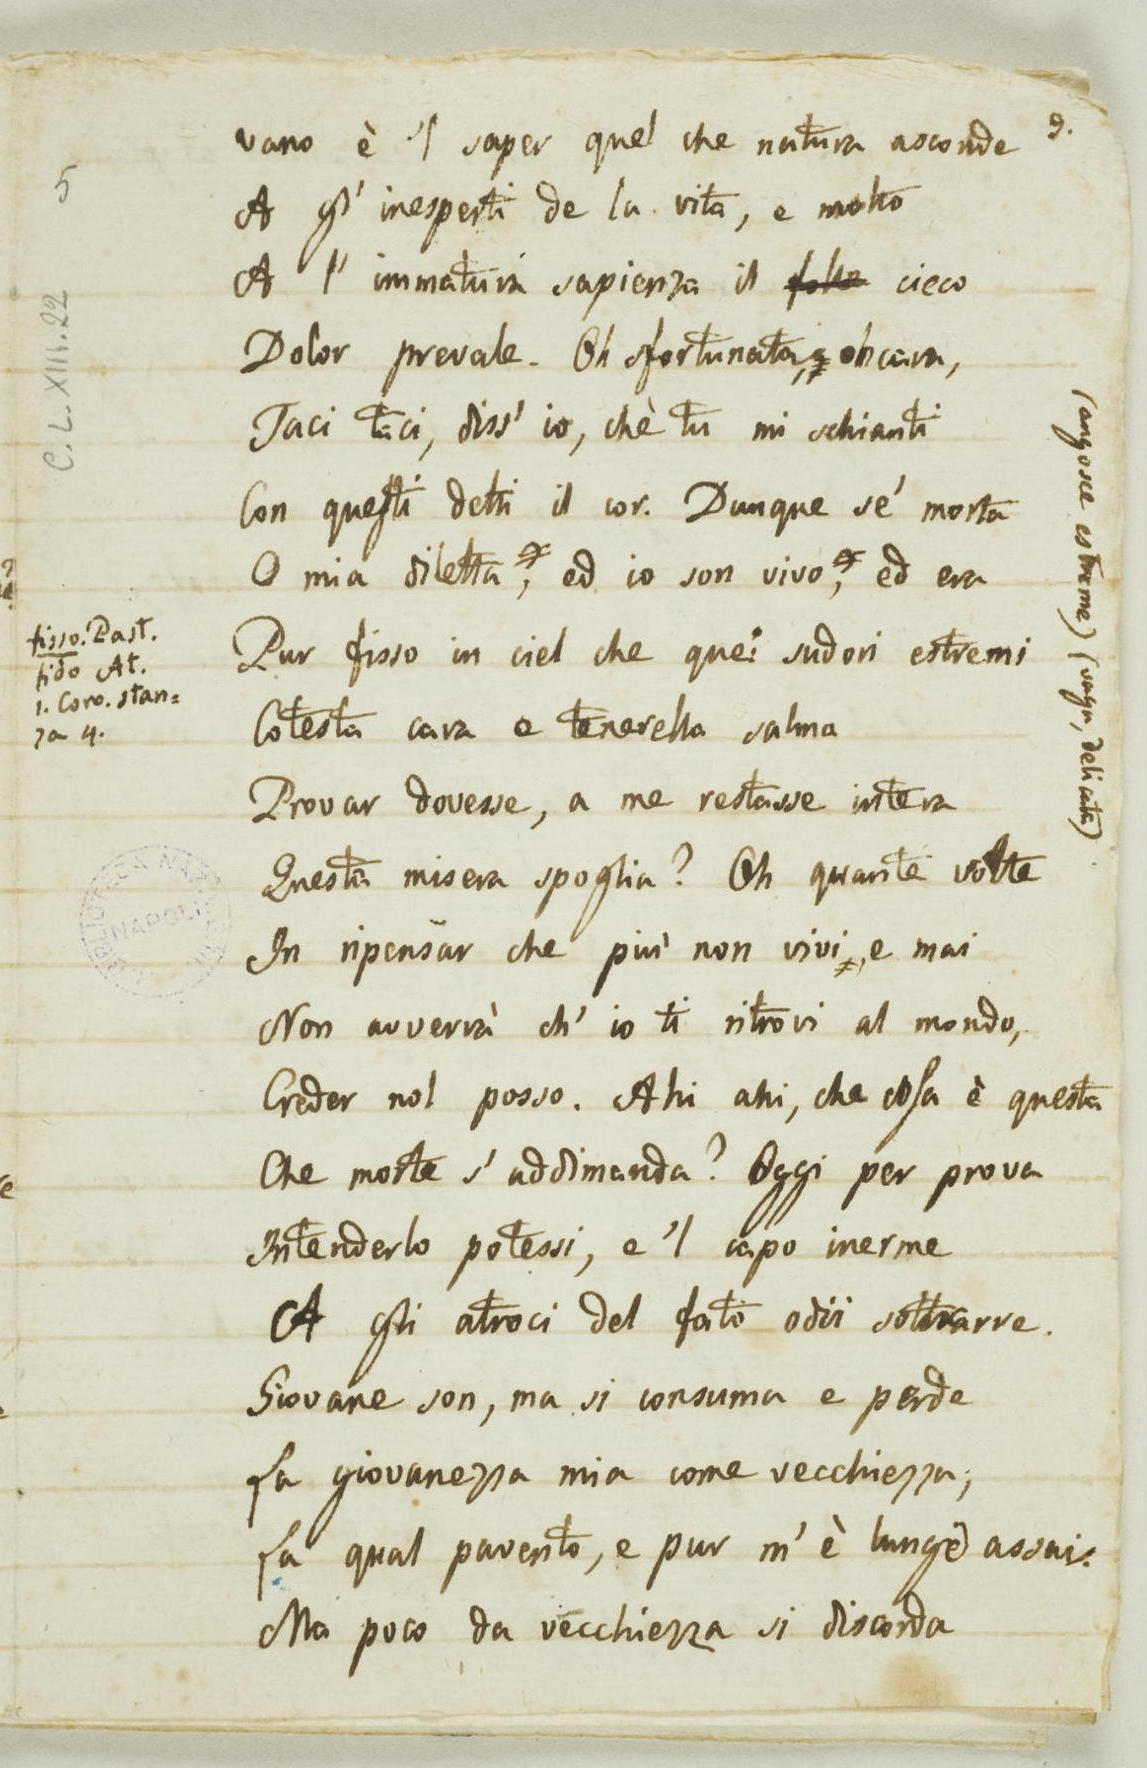 9.
vano è 'l saper quel che natura asconde
A gl' inesperti de la vita, e molto
A l' immatura sapienza il cieco
Dolor prevale. Oh sfortunata, oh cara,
Taci taci, diss' io, chè tu mi schianti
Con questi detti il cor. Dunque se' morta
O mia diletta, ed io son vivo, ed era
Pur fisso in ciel che quei sudori estremi
Cotesta cara e tenerella salma
Provar dovesse, a me restasse intera
Questa misera spoglia? Oh quante volte
In ripensar che più non vivi, e mai
Non avverrà ch' io ti ritrovi al mondo,
Creder nol posso. Ahi ahi, che cosa è questa
Che morte s' addimanda? Oggi per prova
Intenderlo potessi, e 'l capo inerme
A gli atroci del fato odii sottrarre.
Giovane son, ma si consuma e perde
La giovanezza mia come vecchiezza;
La qual pavento, e pur m' è lunge assai.
Ma poco da vecchiezza si discorda
fisso. Past.
fido At.
1. Coro. stan=
za 4.
(angosce estreme) (vaga, delicata)
5
C. L. XIII. 22
BIBLIOTECA NAZ
NAPOLI